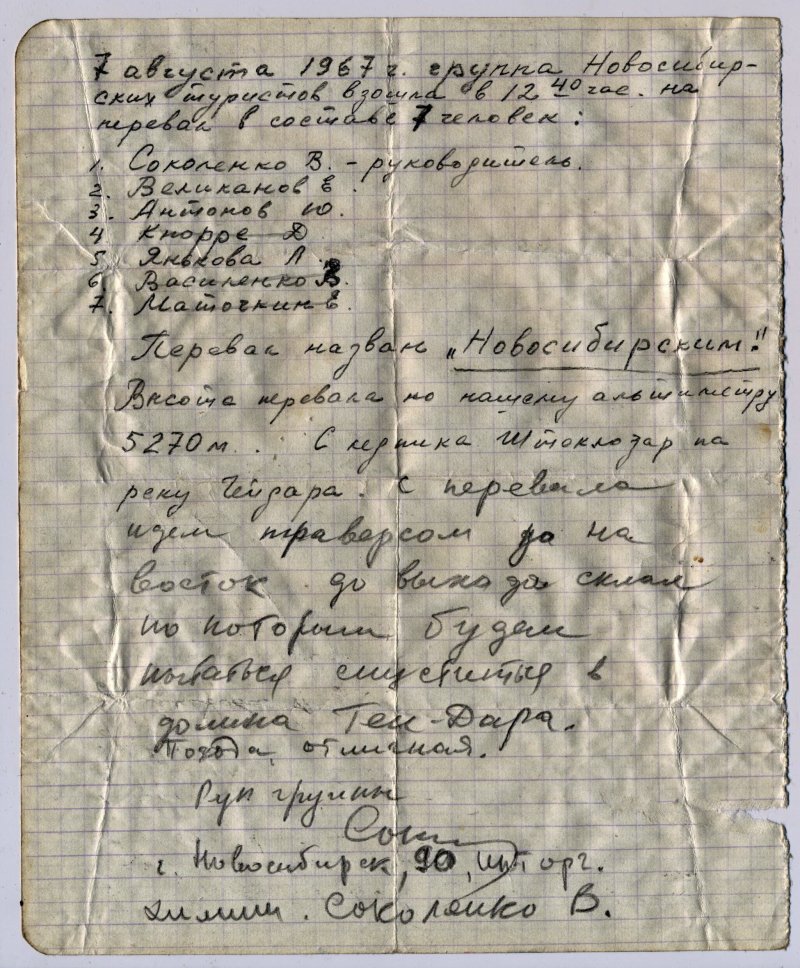 7 августа 1967 г. группа Новосибир-
ских туристов взошла в 12 40 час. на
перевал в составе 7 человек:
1. Соколенко В. - руководитель.
2. Великанов Е.
3. Антонов Ю.
4 Кнорре Д
5 Янькова Л.
6. Василенко В.
7. Маточкин Е.
Перевал назван „Новосибирским!"
Высота перевала по нашему альтиметру
5270 м. С ледника Штоклозар на
реку . С перевала
идем траверсом на
восток до выхода скал
по которым будем
пытаться спуститься в
долина Ген-Дара.
Погода отличная.
Рук группы
г. Новосибирск, 90, инт орг.
химии. Соколенко В.